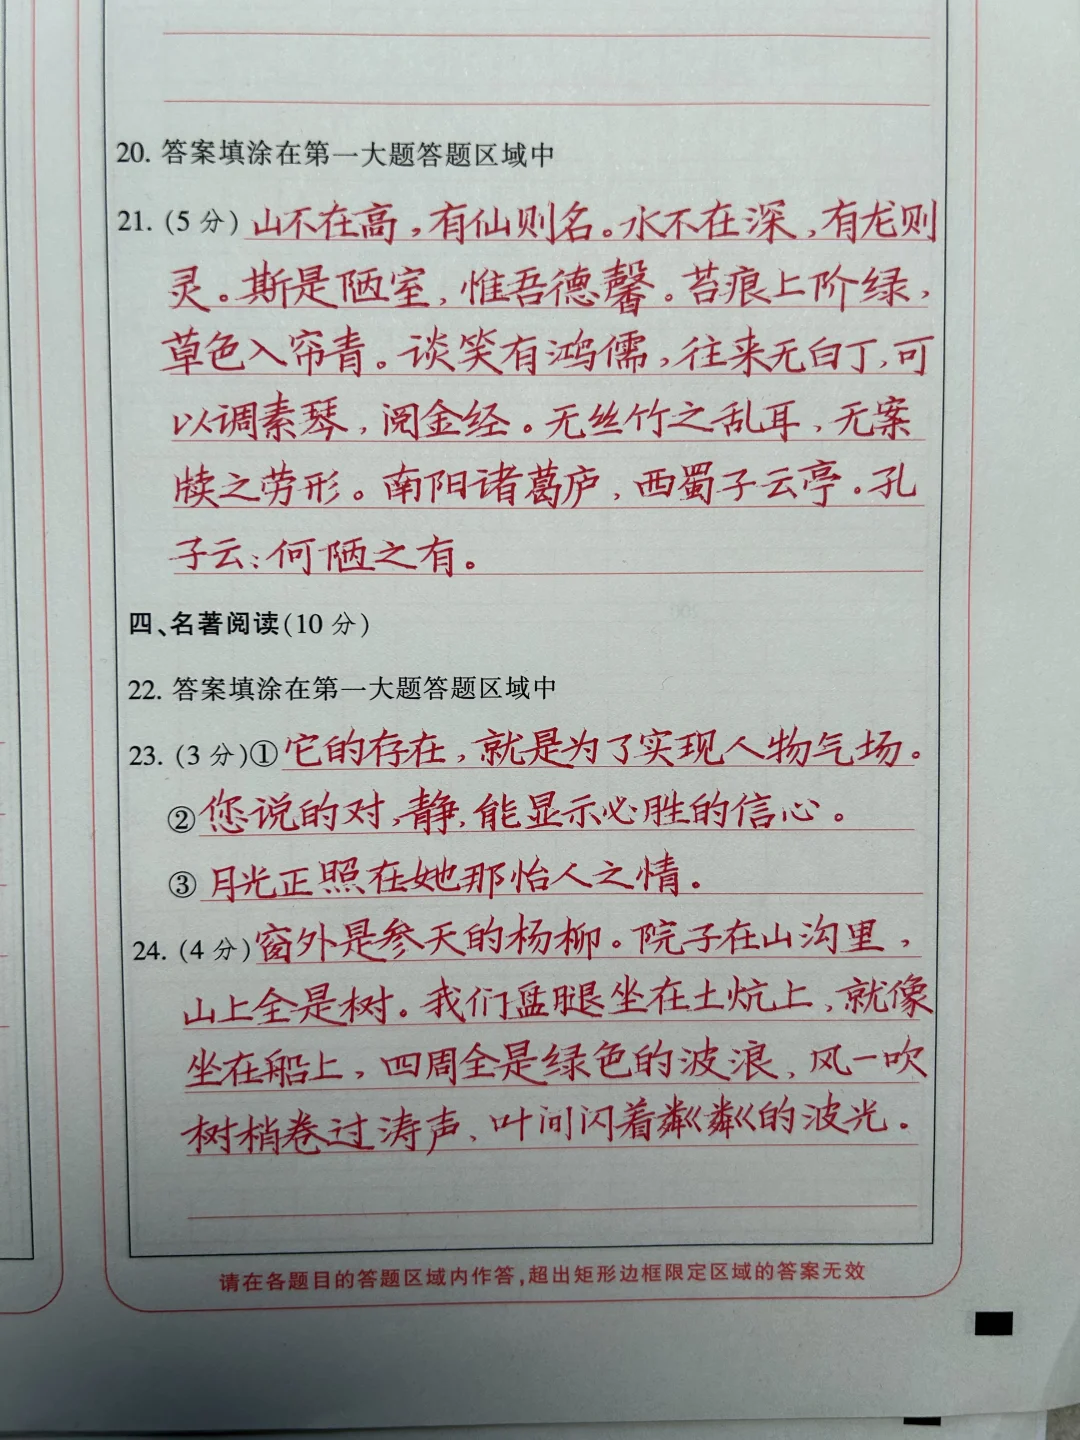 20. 答案填涂在第一大题答题区域中
21. (5 分) 山不在高，有仙则名。水不在深，有龙则
灵。斯是陋室，惟吾德馨。苔痕上阶绿，
草色入帘青。谈笑有鸿儒，往来无白丁，可
以调素琴，阅金经。无丝竹之乱耳，无案
牍之劳形。南阳诸葛庐，西蜀子云亭。孔
子云：何陋之有。
四、名著阅读(10 分)
22. 答案填涂在第一大题答题区域中
23. (3 分)①它的存在，就是为了实现人物气场。
②您说的对，静，能显示必胜的信心。
③月光正照在她那怡人之情。
24. (4 分)窗外是参天的杨柳。院子在山沟里，
山上全是树。我们盘腿坐在土炕上，就像
坐在船上，四周全是绿色的波浪，风一吹
树梢卷过涛声，叶间闪着粼粼的波光。
请在各题目的答题区域内作答，超出矩形边框限定区域的答案无效